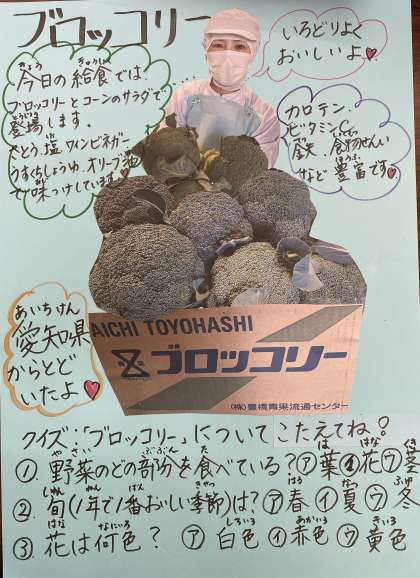 ブロッコリー
いろどりよく
おいしいよ
今日の給食では、
ブロッコリーとコーンのサラダで
登場します。
さとう、塩、ワインビネガー
うすくちしょうゆ、オリーブ油
で味つけしています
カロテン、
ビタミンC
鉄、食物せんい
など豊富です
あいちけん
愛知県
からとど
いたよ
AICHI TOYOHASHI
ブロッコリー
(株)豊橋青果流通センター
クイズ:「ブロッコリー」について こたえてね!
①野菜のどの部分を食べている?㋐葉㋑花㋒茎
②旬(1年で1番おいしい季節)は?㋐春㋑夏㋒冬
③花は何色? ㋐白色㋑赤色㋒黄色